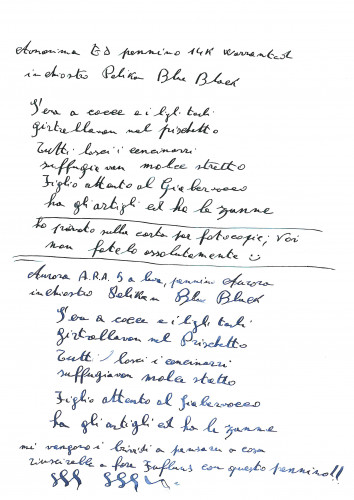 Anonima ED pennino 14K Warranted
inchiostro Pelikan Blue Black
S'era a cocce e i ligli tarli
girtrellavan nel pischetto
Tutti losci i cencinarri
suffuggiavan molce stretto
Figlio attento al Giabervocco
ha gli artigli ed ha le zanne
ho provato sulla carta per fotocopie; Voi
non fatelo assolutamente
Aurora A.R.A. 5 a leva, pennino Aurora
inchiostro Pelikan Blue Black
S'era a cocce e i ligli tarli
girtrellavan nel Prischetto
Tutti losci i cencinarri
suffuggiavan molce stetto
Figlio attento al Giabervocco
ha gli artigli ed ha le zanne
mi vengono i brividi a pensare a cosa
riuscirebbe a fare con questo pennino!!